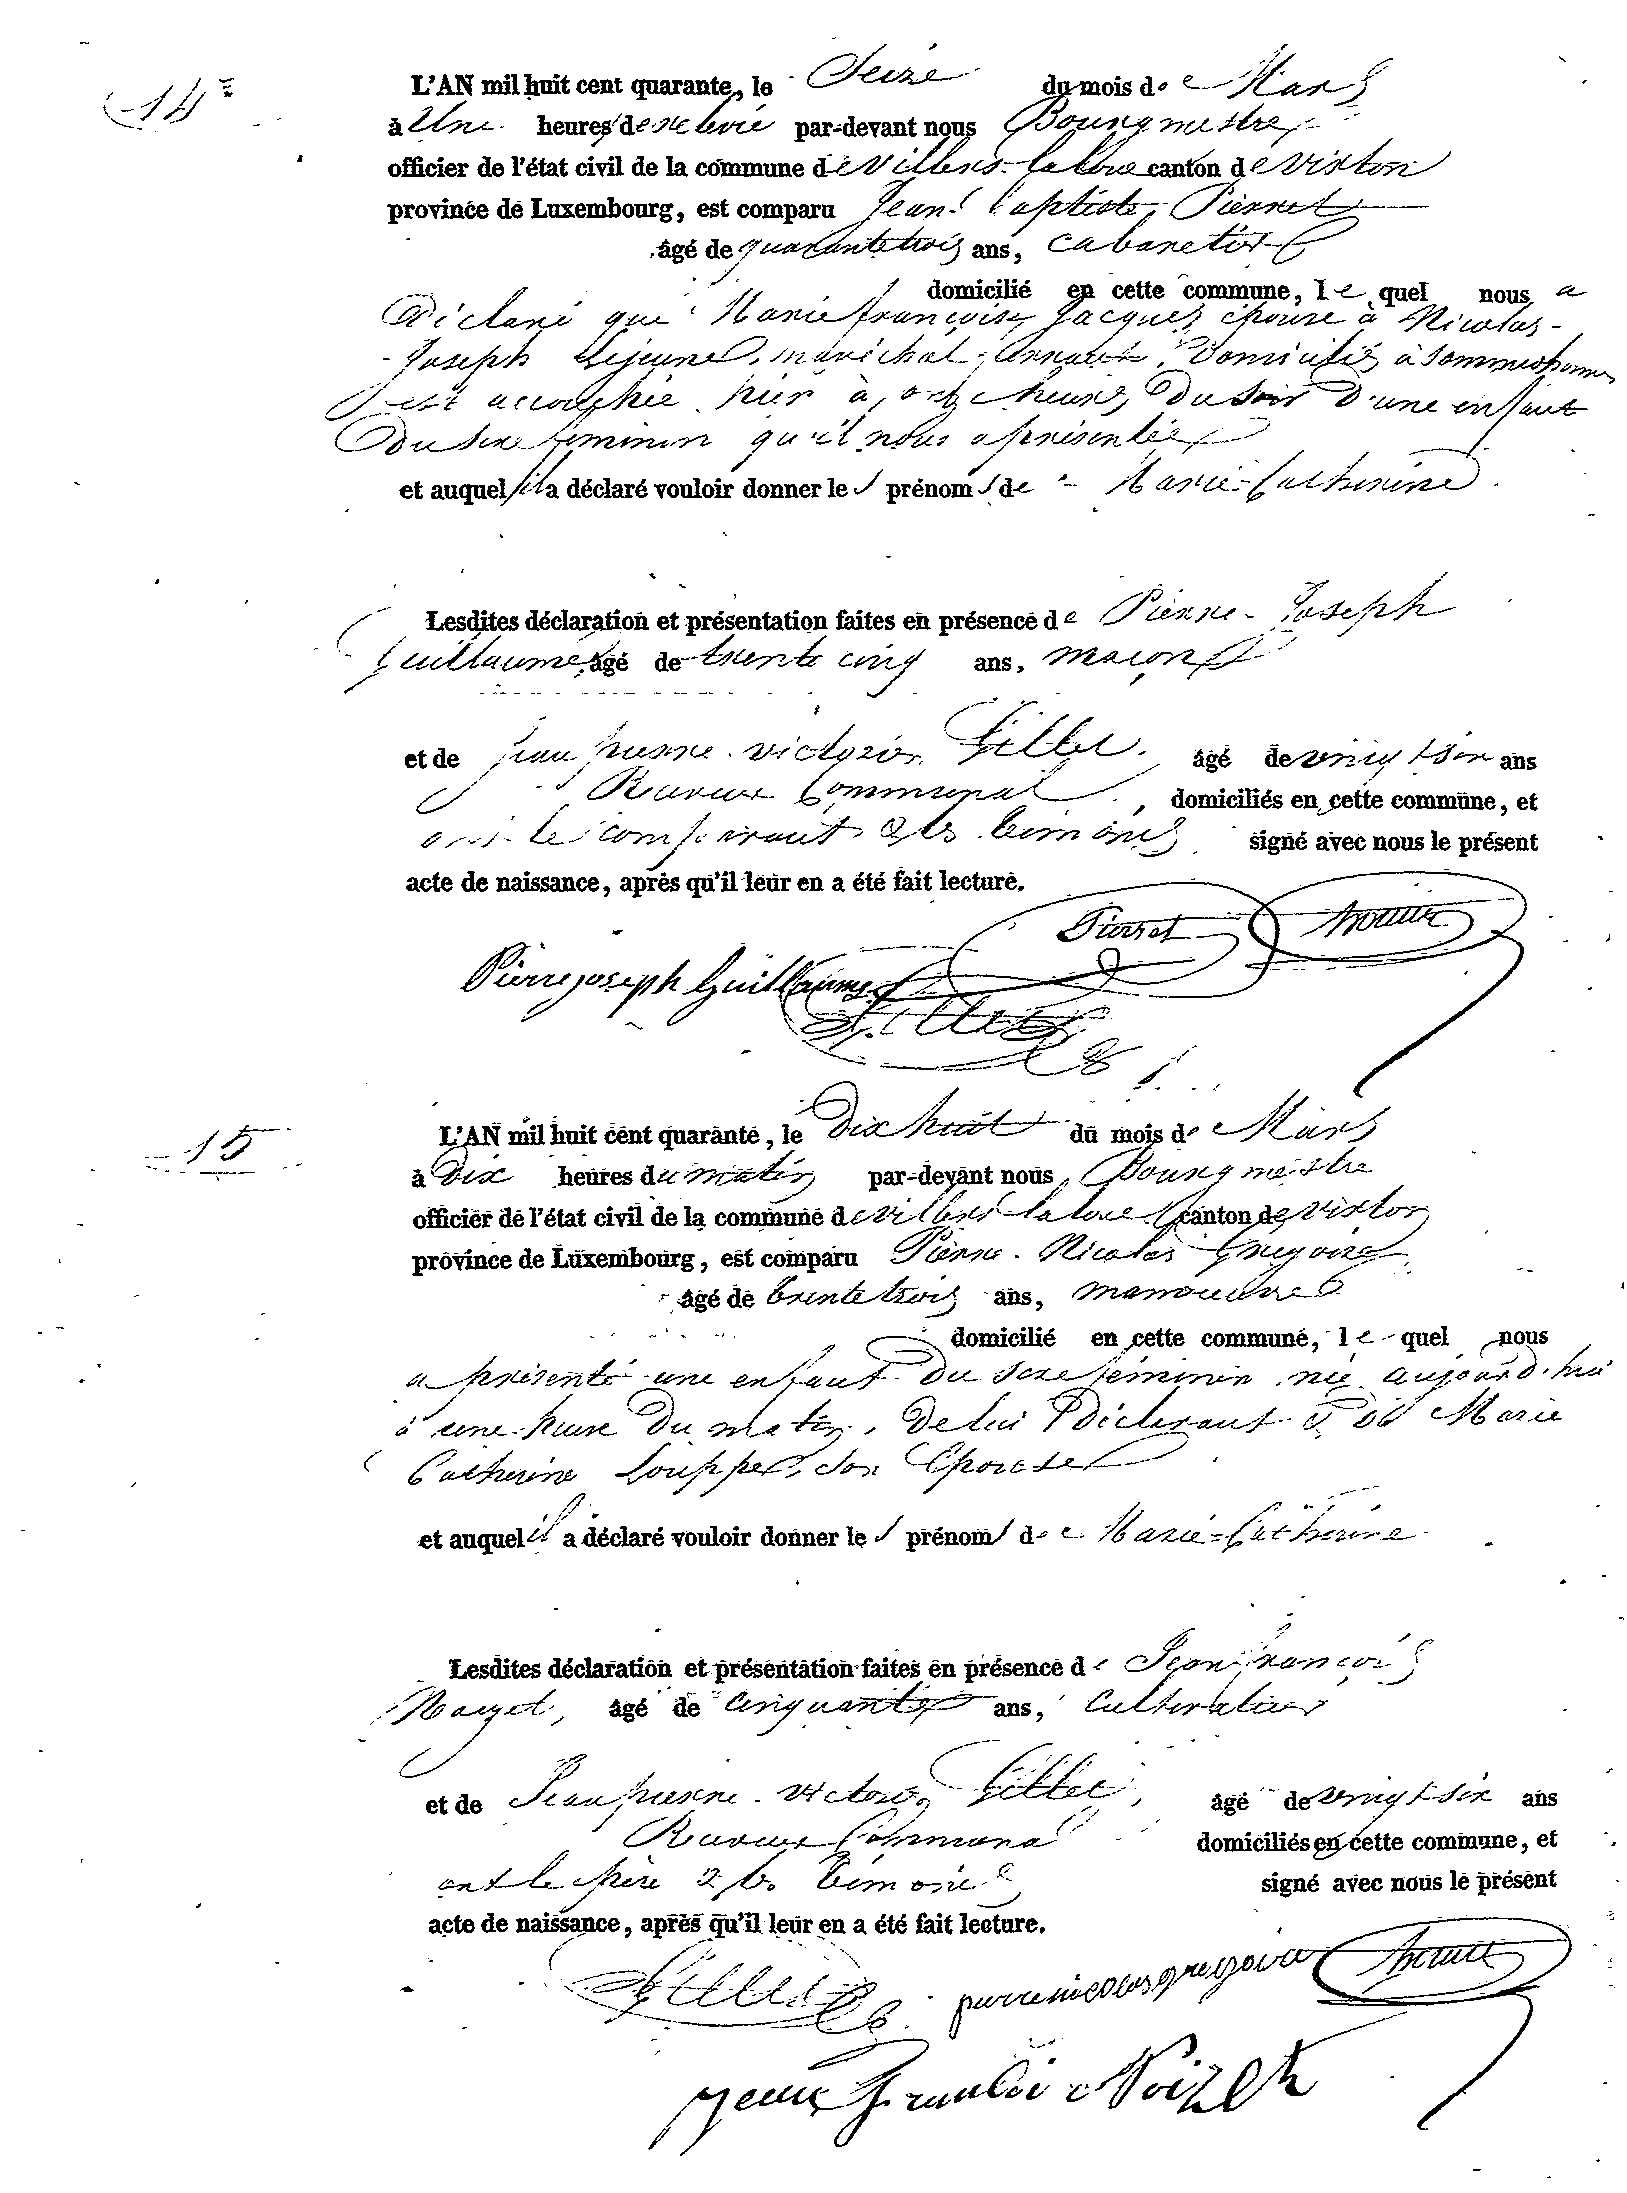 14e
L'AN mil huit cent quarante, le Seize du mois de Mars
à Une heures de relevée par-devant nous Bourgmestre
officier de l'état civil de la commune de Villers-laloue canton de virton
province de Luxembourg, est comparu Jean Baptiste Pierret
âgé de quarante trois ans, cabaretier
domicilié en cette commune, le quel nous a
Déclaré que Marie françoise Jacques épouse à Nicolas-
Joseph Lejeune, maréchal ferrant, Domiciliés à Sommethonne
est accouchée hier à onze heures Du Soir D'une enfant
Du Sexe féminin qu'il nous a présentée
et auquel il a déclaré vouloir donner les prénoms de Marie-Catherine
Lesdites déclaration et présentation faites en présence de Pierre-Joseph
Guillaume âgé de trente cinq ans, maçon
et de Jean pierre victorin Gillet âgé de vingt six ans
Receveur Communal, domiciliés en cette commune, et
ont le comparant & les témoins signé avec nous le présent
acte de naissance, après qu'il leur en a été fait lecture.
Pierret
Pierre joseph Guillaume
Gillet
15
L'AN mil huit cent quarante, le Dix huit du mois de Mars
à Dix heures du matin par-devant nous Bourgmestre
officier de l'état civil de la commune de villers laloue canton de virton
province de Luxembourg, est comparu Pierre-Nicolas Gregoire
âgé de trente trois ans, manoeuvre
domicilié en cette commune, le quel nous
a présenté une enfant Du Sexe féminin née aujourd'hui
à une heure Du matin, De lui Déclarant & de Marie
Catherine Louppe, son Epouse
et auquel il a déclaré vouloir donner les prénoms de Marie-Catherine
Lesdites déclaration et présentation faites en présence de Jean françois
Noizet, âgé de cinquante ans, Cultivateur
et de Jean pierre victorin Gillet, âgé de vingt six ans
Receveur Communal domiciliés en cette commune, et
ont le père & les témoins signé avec nous le présent
acte de naissance, après qu'il leur en a été fait lecture.
Gillet pierre nicolas gregoire
Noizet